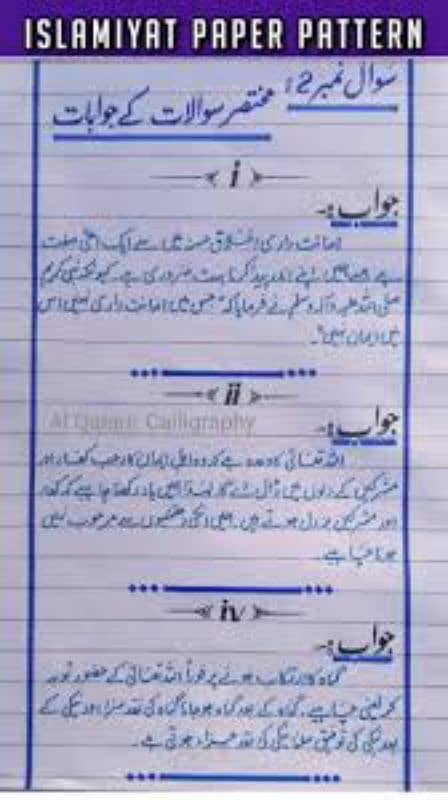 ISLAMIYAT PAPER PATTERN
سوال نمبر 2:
مختصر سوالات کے جوابات
i
جواب:-
امانت داری اخلاق حسنہ میں سے ایک اعلیٰ صفت
ہے جسے ہمیں اپنے اندر پیدا کرنا بہت ضروری ہے۔ کیونکہ نبی کریم
صلی اللہ علیہ وآلہ وسلم نے فرمایا کہ "جس میں امانت داری نہیں اس
میں ایمان نہیں"۔
ii
Al Qalam Calligraphy
جواب:-
اللہ تعالیٰ کا وعدہ ہے کہ وہ اہل ایمان کا رعب کفار اور
مشرکین کے دلوں میں ڈال دے گا۔ لہذا ہمیں یاد رکھنا چاہیے کہ کفار
اور مشرکین بزدل ہوتے ہیں۔ ہمیں انکی دھمکیوں سے مرعوب نہیں
ہونا چاہیے۔
iv
جواب:-
گناہ کا ارتکاب ہونے پر فوراً اللہ تعالیٰ کے حضور توبہ
کر لینی چاہیے۔ گناہ کے بعد گناہ ہو جانا گناہ کی نقد سزا اور نیکی کے
بعد نیکی کی توفیق ملنا نیکی کی نقد جزاء ہوتی ہے۔